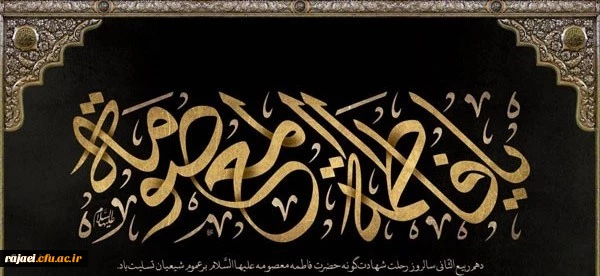 یا فاطمة المعصومة
علیهاالسلام
دهم ربیع الثانی سالروز رحلت شهادت گونه حضرت فاطمه معصومه علیها السّلام بر عموم شیعیان تسلیت باد.
rajaei.cfu.ac.ir